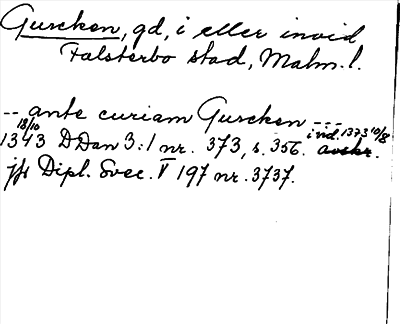 Gurcken, gd, i eller invid
Falsterbo stad, Malm. l.
-- ante curiam Gurcken ---
1343 18/10 DDan 3:1 nr. 373, s. 356. i vid. 1373 10/8 avskr.
jfr Dipl. Svec. V 197 nr. 3737.